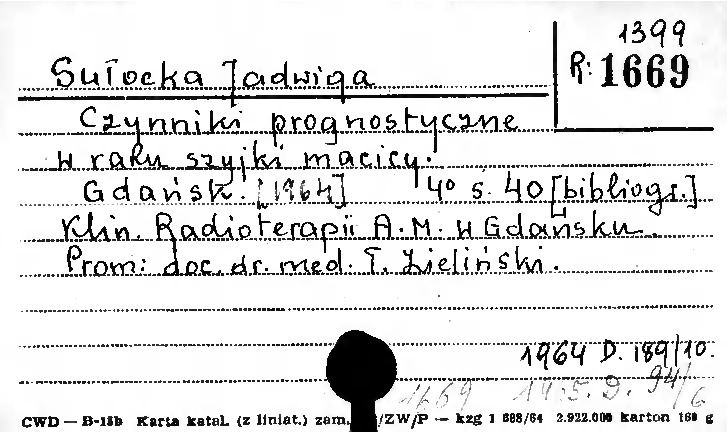 1399
R: 1669
Sułocka Jadwiga
Czynniki prognostyczne
w raku szyjki macicy.
Gdańsk. [1964] 4° s. 40 [bibliogr.]
Klin. Radioterapii A.M. w Gdańsku.
Prom: doc. dr. med. T. Zieliński.
1964 D. 189/10.
1669 19.5.D. 94/6
CWD — B-18b Karta katal. (z liniat.) zam. /ZW/P — kzg 1 688/64 2.922.000 karton 160 g